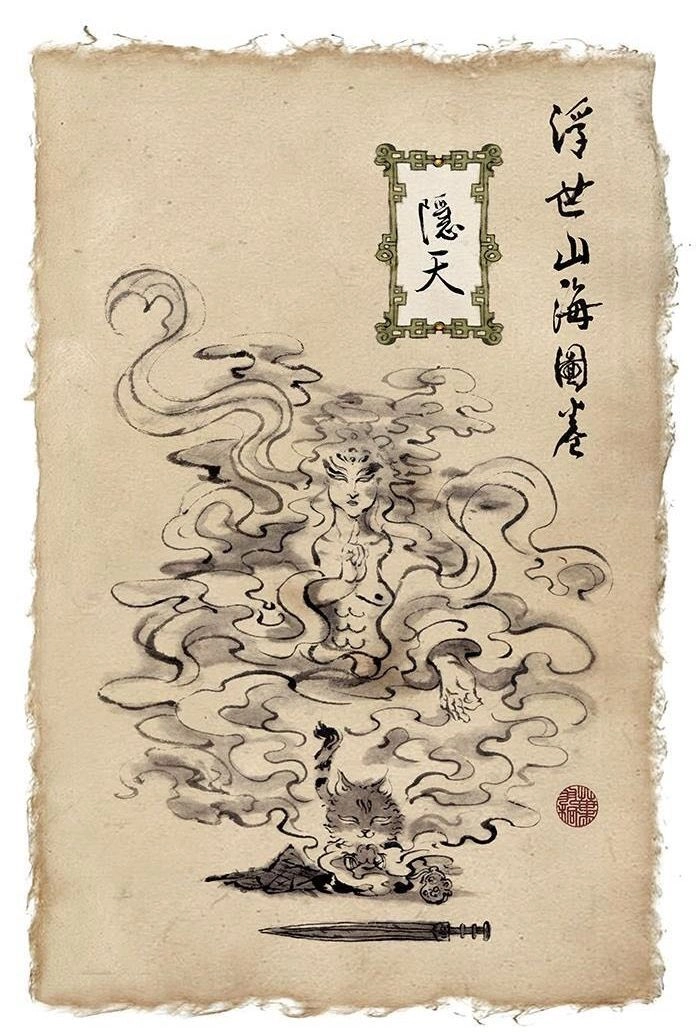 浮世山海圖卷
隱天